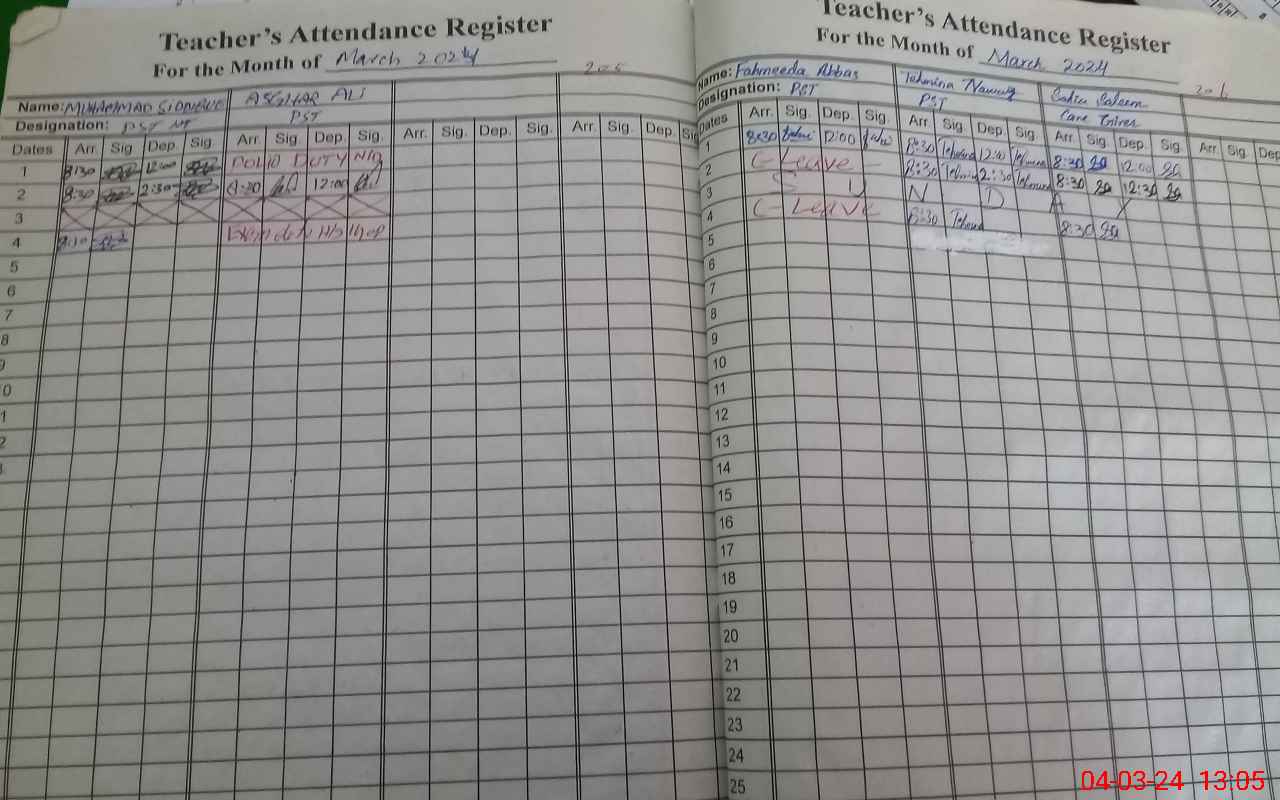 Teacher's Attendance Register
For the Month of March 2024
205
Name: MUHAMMAD ASGHAR ALI
Designation: PST PST
Dates Arr. Sig Dep. Sig. Arr. Sig Dep. Sig. Arr. Sig. Dep. Sig. Arr. Sig. Dep. Sig
1 8:30 12:00 POLIO DUTY
2 8:30 2:30 8:30 12:00
3
4 8:30
5
6
7
8
9
0
1
2
3
Teacher's Attendance Register
For the Month of March 2024
206
Name: Fahmeeda Abbas Tehmina Sadia Saleem
Designation: PST PST Care Giver
Dates Arr. Sig. Dep. Sig. Arr. Sig. Dep. Sig. Arr. Sig. Dep. Sig. Arr. Sig. Dep
1 8:30 12:00 8:30 Tehmina 12:00 Tehmina 8:30 12:00
2 C-Leave 8:30 Tehmina 2:30 Tehmina 8:30 12:30
3 S U N D A Y
4 C-Leave 8:30 8:30
5
6
7
8
9
10
11
12
13
14
15
16
17
18
19
20
21
22
23
24
25
04-03-24 13:05